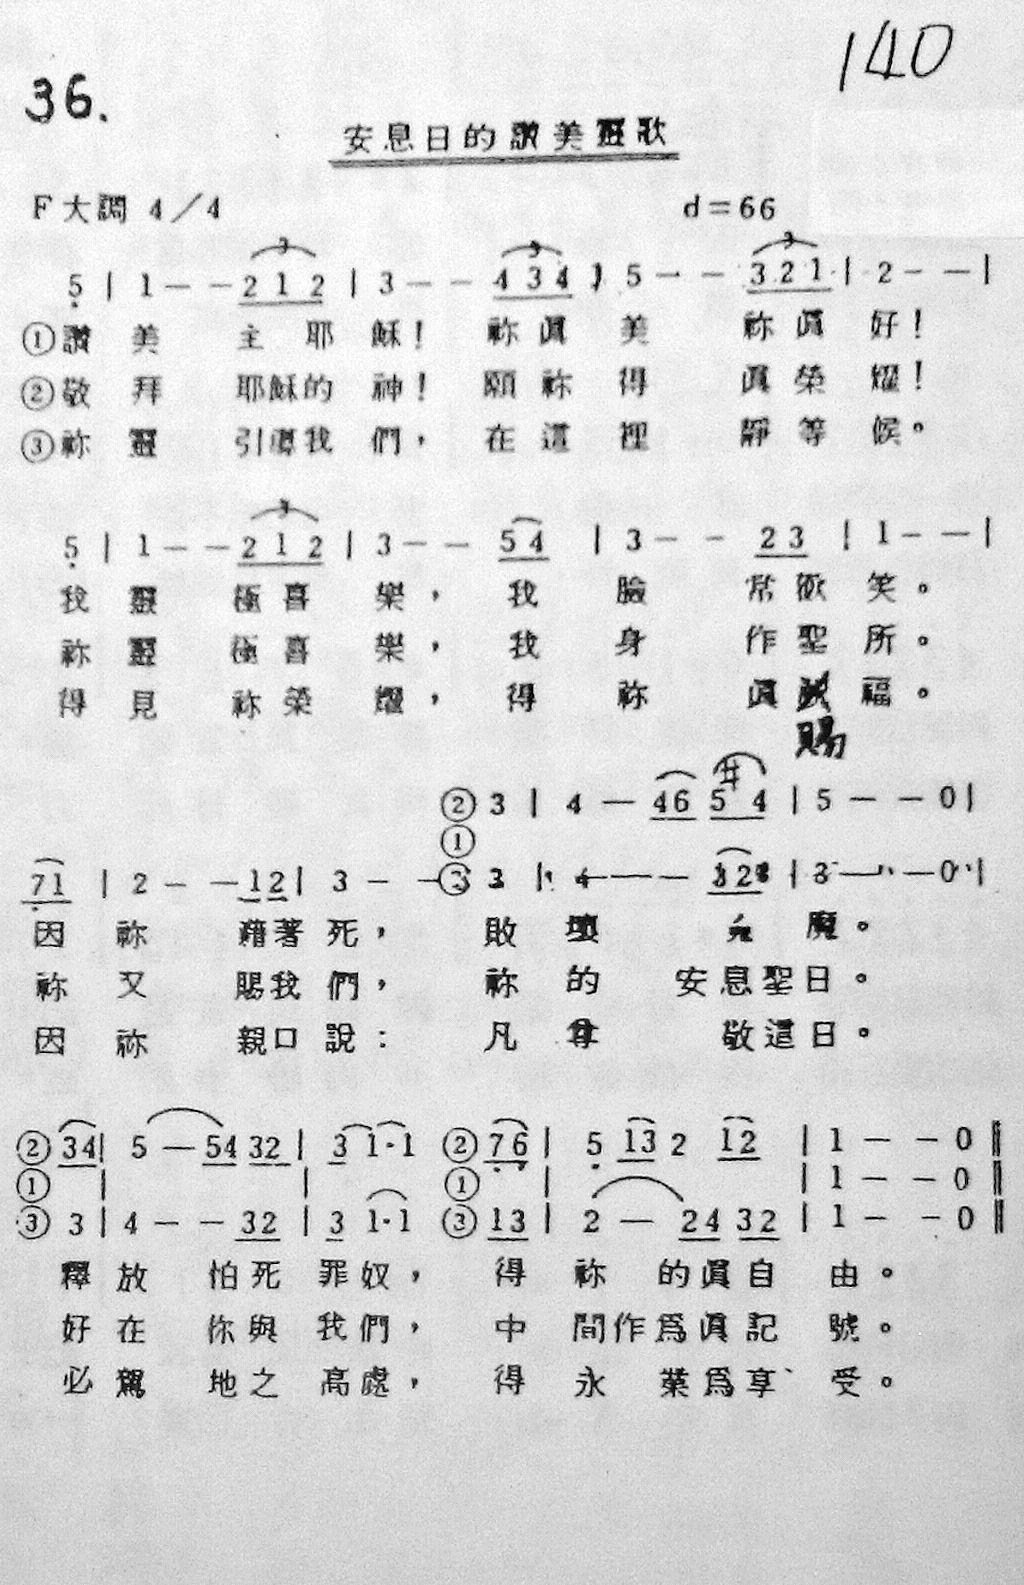 140
36.
安息日的讚美靈歌
F大調 4／4 d＝66
5 | 1 － － 2 1 2 | 3 － － 4 3 4 | 5 － － 3 2 1 | 2 － － |
①讚美 主耶穌！祢眞美 祢眞好！
②敬拜 耶穌的神！願祢得 眞榮耀！
③祢靈 引導我們，在這裡 靜等候。
5 | 1 － － 2 1 2 | 3 － － 5 4 | 3 － － 2 3 | 1 － － |
我靈 極喜樂，我臉 常歡笑。
祢靈 極喜樂，我身 作聖所。
得見 祢榮耀，得祢 眞 福。
賜
② 3 | 4 － 4 6 #5 4 | 5 － － 0 |
①
7 1 | 2 － － 1 2 | 3 － － ③ 3 | 4 － － － 3 2 | 3 － － 0 |
因祢 藉著死，敗壞 鬼魔。
祢又 賜我們，祢的 安息聖日。
因祢 親口說：凡尊 敬這日。
② 3 4 | 5 － 5 4 3 2 | 3 1 · 1 ② 7 6 | 5 1 3 2 1 2 | 1 － － 0 ‖
① | | ① | | 1 － － 0 ‖
③ 3 | 4 － － 3 2 | 3 1 · 1 ③ 1 3 | 2 － 2 4 3 2 | 1 － － 0 ‖
釋放 怕死罪奴，得祢 的眞自由。
好在 你與我們，中間作爲眞記號。
必駕 地之高處，得永 業爲享受。